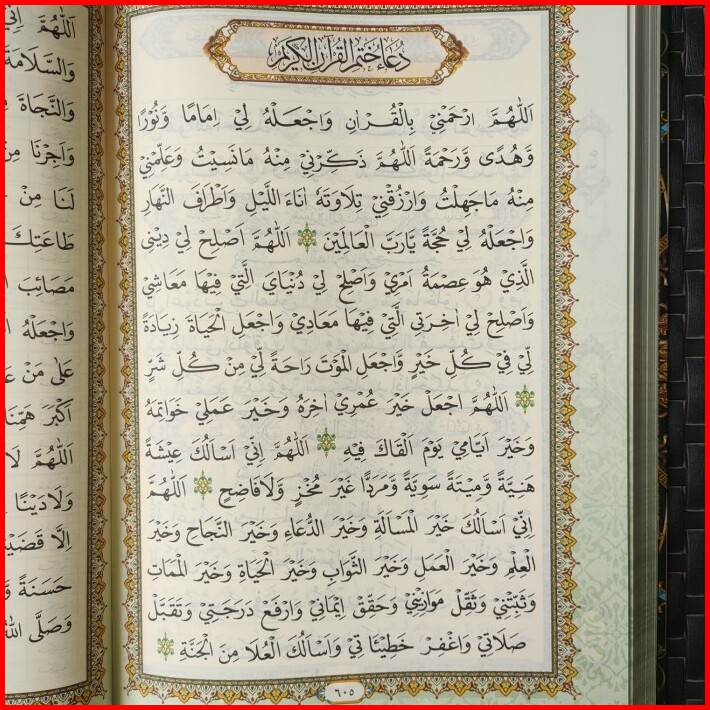 دُعَاءُ خَتْمِ الْقُرْآنِ الْكَرِيمِ
اَللّٰهُمَّ ارْحَمْنِيْ بِالْقُرْاٰنِ وَاجْعَلْهُ لِيْ اِمَامًا وَّنُوْرًا
وَّهُدًى وَّرَحْمَةً اَللّٰهُمَّ ذَكِّرْنِيْ مِنْهُ مَانَسِيْتُ وَعَلِّمْنِيْ
مِنْهُ مَاجَهِلْتُ وَارْزُقْنِيْ تِلَاوَتَهٗ اٰنَاءَ اللَّيْلِ وَاَطْرَافَ النَّهَارِ
وَاجْعَلْهُ لِيْ حُجَّةً يَارَبَّ الْعَالَمِيْنَ اَللّٰهُمَّ اَصْلِحْ لِيْ دِيْنِي
الَّذِيْ هُوَعِصْمَةُ اَمْرِيْ وَاَصْلِحْ لِيْ دُنْيَايَ الَّتِيْ فِيْهَا مَعَاشِيْ
وَاَصْلِحْ لِيْ اٰخِرَتِي الَّتِيْ فِيْهَا مَعَادِيْ وَاجْعَلِ الْحَيَاةَ زِيَادَةً
لِّيْ فِيْ كُلِّ خَيْرٍ وَّاجْعَلِ الْمَوْتَ رَاحَةً لِّيْ مِنْ كُلِّ شَرٍّ
اَللّٰهُمَّ اجْعَلْ خَيْرَ عُمْرِيْ اٰخِرَهٗ وَخَيْرَ عَمَلِيْ خَوَاتِمَهٗ
وَخَيْرَ اَيَّامِيْ يَوْمَ اَلْقَاكَ فِيْهِ اَللّٰهُمَّ اِنِّيْ اَسْاَلُكَ عِيْشَةً
هَنِيَّةً وَّمِيْتَةً سَوِيَّةً وَّمَرَدًّا غَيْرَ مُخْزٍ وَّلَافَاضِحٍ اَللّٰهُمَّ
اِنِّيْ اَسْاَلُكَ خَيْرَ الْمَسْاَلَةِ وَخَيْرَ الدُّعَاءِ وَخَيْرَ النَّجَاحِ وَخَيْرَ
الْعِلْمِ وَخَيْرَ الْعَمَلِ وَخَيْرَ الثَّوَابِ وَخَيْرَ الْحَيَاةِ وَخَيْرَ الْمَمَاتِ
وَثَبِّتْنِيْ وَثَقِّلْ مَوَازِيْنِيْ وَحَقِّقْ اِيْمَانِيْ وَارْفَعْ دَرَجَتِيْ وَتَقَبَّلْ
صَلَاتِيْ وَاغْفِرْ خَطِيْئَاتِيْ وَاَسْاَلُكَ الْعُلَا مِنَ الْجَنَّةِ
٦٠٥
اَللّٰهُمَّ
وَالسَّلَامَةَ
وَالنَّجَاةَ
وَاَجِرْنَا مِنْ
لَنَا مِنْ
طَاعَتِكَ
مَصَائِبَ
وَاجْعَلْهُ
عَلٰى مَنْ
اَكْبَرَ هَمِّنَا
اَللّٰهُمَّ لَا
وَلَادَيْنًا
اِلَّا قَضَيْتَ
حَسَنَةً
وَصَلَّى اللّٰهُ